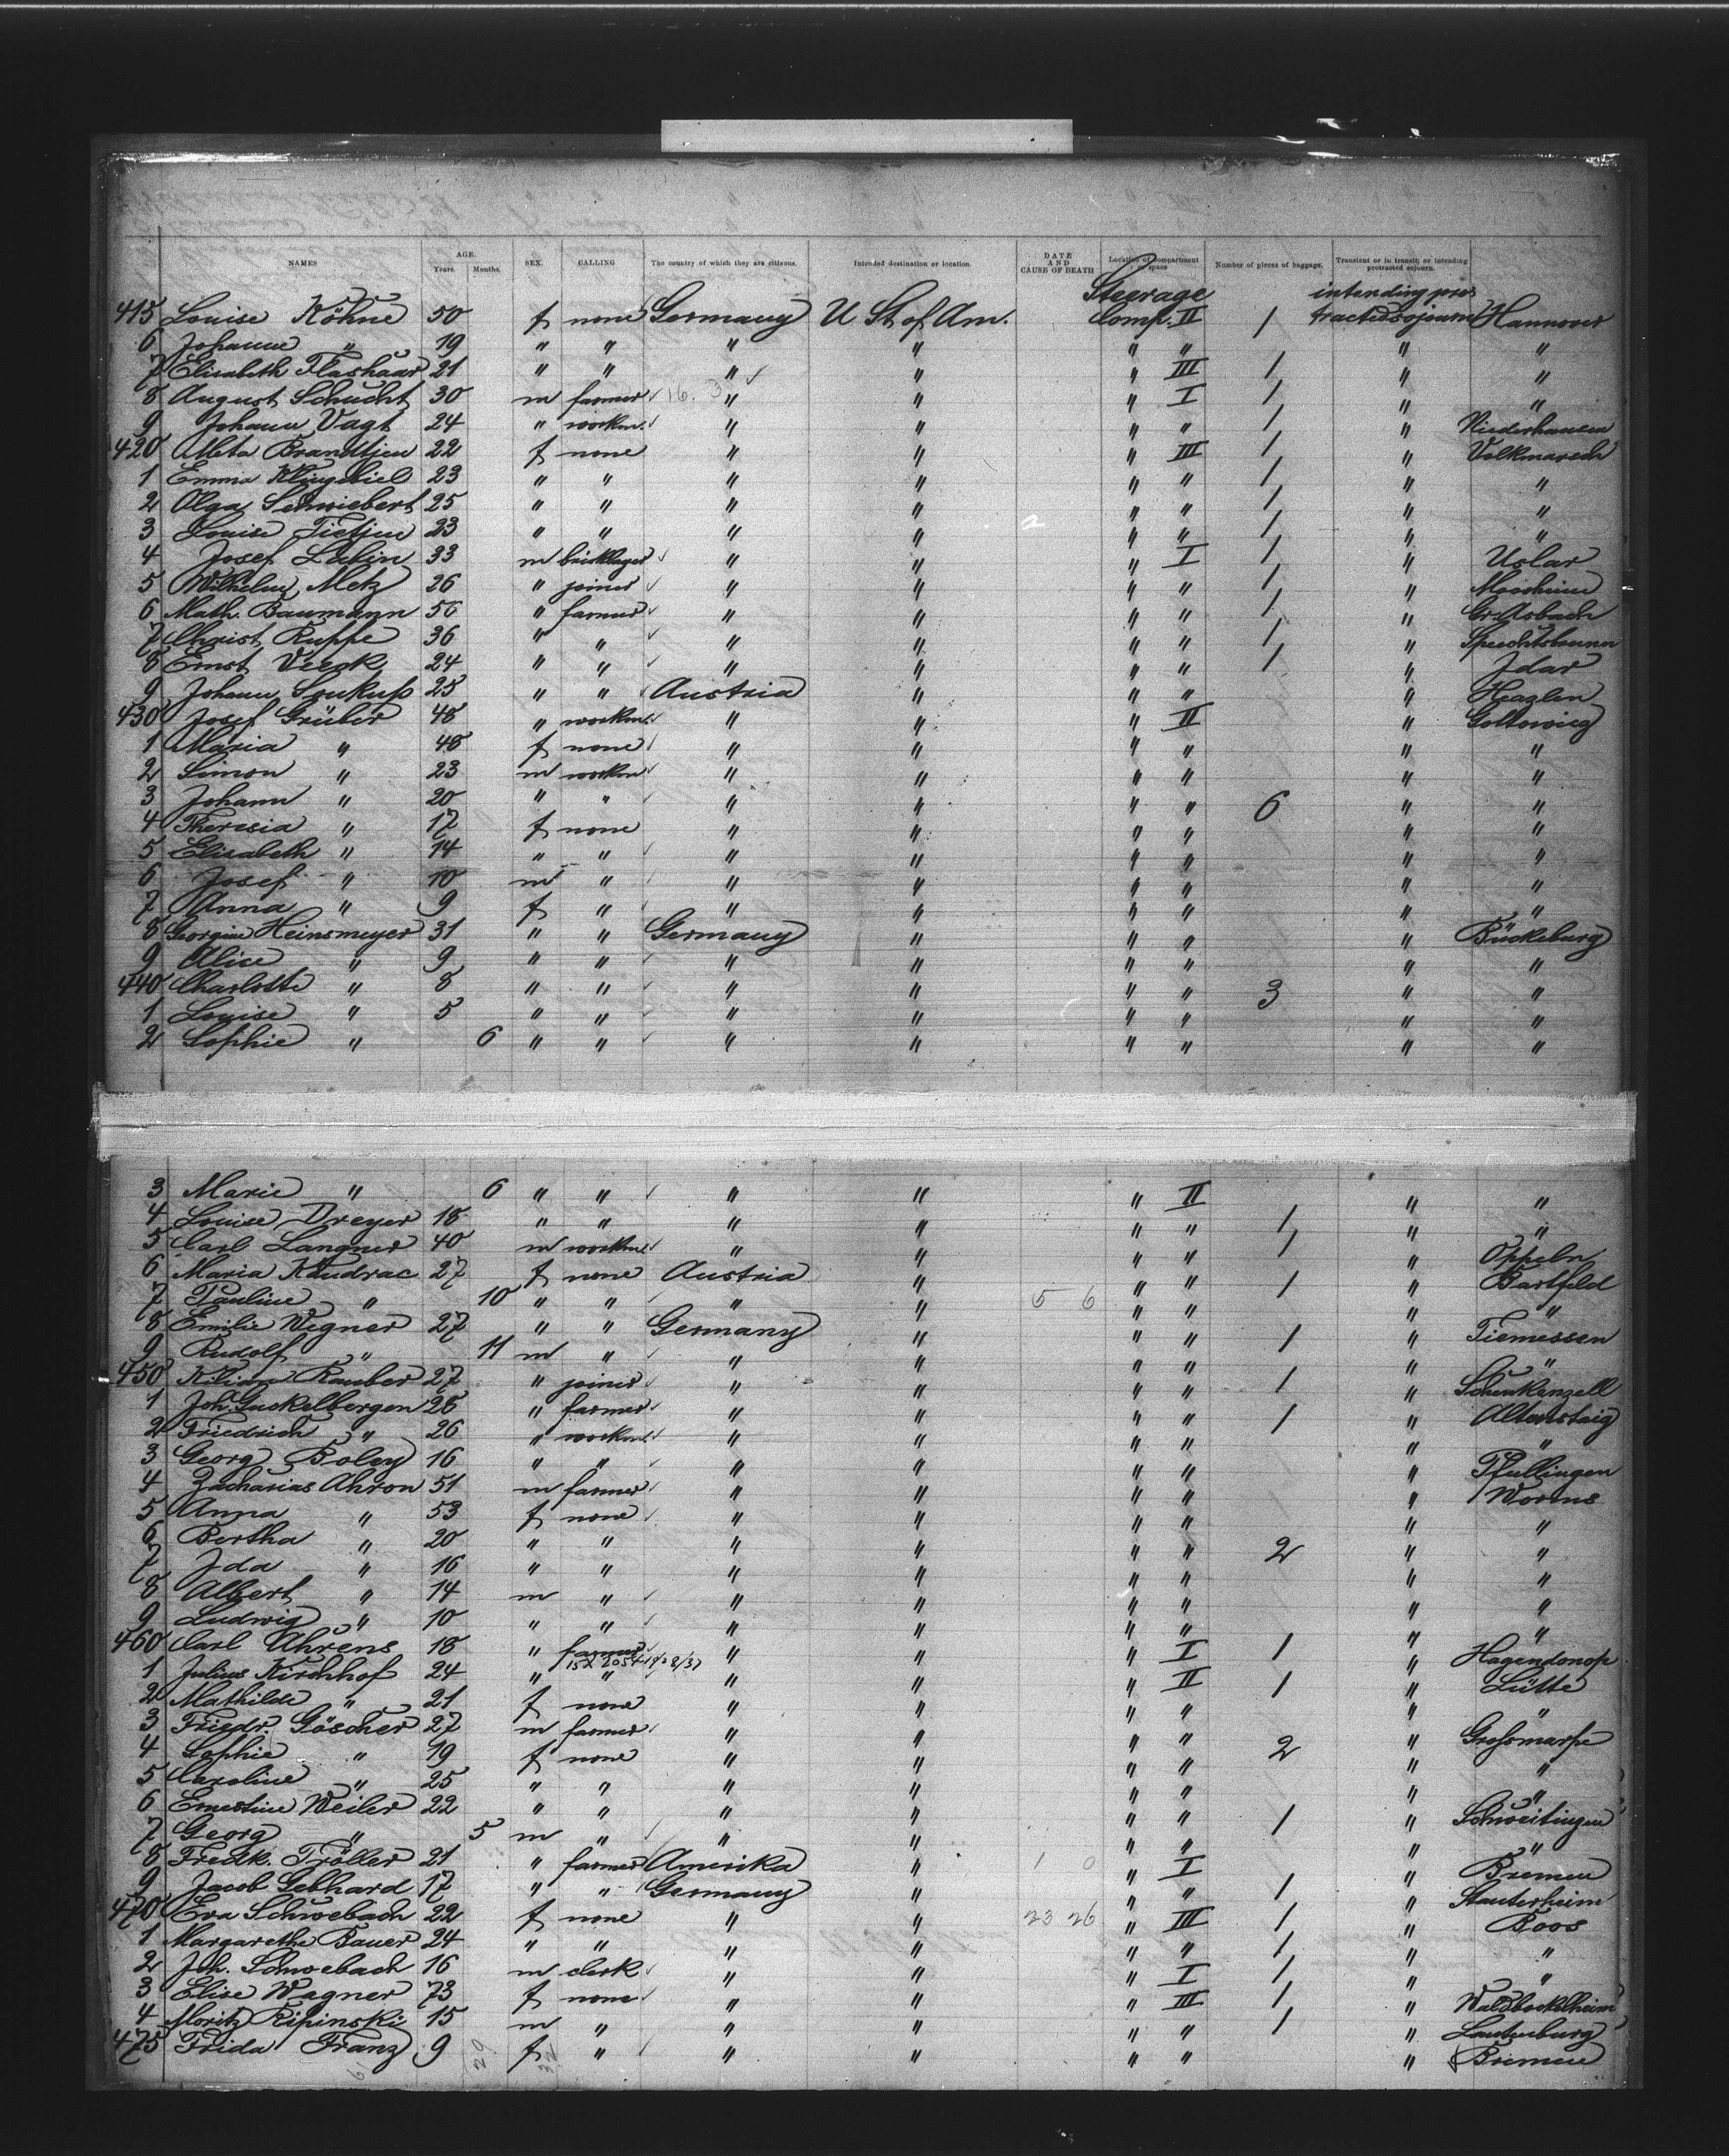 NAMES AGE. Years. Months. SEX. CALLING The country of which they are citizens. Intended destination or location. DATE AND CAUSE OF DEATH Location of compartment or space Number of pieces of baggage. Transient or in transit, or intending protracted sojourn.
Steerage intending pro=
415 Louise Köhne 50 f none Germany U St of Am. Comp. II 1 tracted sojourn Hannover
6 Johanne " 19 " " " " " " " "
7 Elisabeth Flashaar 21 " " " " " III 1 " "
8 August Schucht 30 m farmer " " " I 1 " "
9 Johann Vagt 24 " workm. " " " " 1 " Niederhausen
420 Meta Brandtjen 22 f none " " " III 1 " Volkmarsen
1 Emma Klingebiel 23 " " " " " " 1 " "
2 Olga Schwiebert 25 " " " " " " 1 " "
3 Louise Tietjen 23 " " " " " " 1 " "
4 Josef Lubin 33 m bricklayer " " " I 1 " Uslar
5 Wilhelm Metz 26 " joiner " " " " 1 " Moosheim
6 Math. Baumann 56 " farmer " " " " 1 " Gr. Asbach
7 Christ. Ruppe 36 " " " " " " 1 " Spechtsbrunn
8 Ernst Veeck 24 " " " " " " 1 " Idar
9 Johann Soukup 25 " " Austria " " " "
430 Josef Grüber 48 " workm. " " " II " Gottowieg
1 Maria " 48 f none " " " " " "
2 Simon " 23 m workm " " " " " "
3 Johann " 20 " " " " " " 6 " "
4 Theresia " 17 f none " " " " " "
5 Elisabeth " 14 " " " " " " " "
6 Josef " 10 m " " " " " " "
7 Anna " 9 f " " " " " " "
8 Georgine Heinsmeyer 31 " " Germany " " " " Bückeburg
9 Alice " 9 " " " " " " " "
440 Charlotte " 8 " " " " " " 3 " "
1 Louise " 5 " " " " " " " "
2 Sophie " 6 " " " " " " " "
3 Marie " 6 " " " " " II " "
4 Louise Dreyer 18 " " " " " " 1 " "
5 Carl Langner 40 m workm. " " " " 1 " Oppeln
6 Maria Kandrac 27 f none Austria " " " 1 " Bartfeld
7 Pauline " 10 " " " " 5 6 " " " "
8 Emilie Wegner 27 " " Germany " " " 1 " Tiemessen
9 Rudolf " 11 m " " " " " " "
450 Kilian Rauber 27 " joiner " " " " 1 " Schenkenzell
1 Joh. Guckelbergen 28 " farmer " " " " 1 " Altensteig
2 Friedrich " 26 " workm. " " " " " "
3 Georg Boley 16 " " " " " " " Pfullingen
4 Zacharias Ahron 51 m farmer " " " " " Worms
5 Anna " 53 f none " " " " " "
6 Bertha " 20 " " " " " " 2 " "
7 Ida " 16 " " " " " " " "
8 Albert " 14 m " " " " " " "
9 Ludwig " 10 " " " " " " " "
460 Carl Ahrens 18 " farmer " " " I 1 " Hagendonop
1 Julius Kirchhof 24 " " " " " II 1 " Lütte
2 Mathilde " 21 f none " " " " " "
3 Friedr. Göscher 27 m farmer " " " " 2 " Grossmarpe
4 Sophie " 19 f none " " " " " "
5 Caroline " 25 " " " " " " " "
6 Ernestine Weiler 22 " " " " " " 1 " Schweitingen
7 Georg " 5 m " " " " " " "
8 Fredk. Tröller 21 " farmer Amerika " 1 0 " I " Bremen
9 Jacob Gebhard 17 " " Germany " " " 1 " Stauterheim
470 Eva Schwebach 22 f none " " 23 26 " III 1 " Boos
1 Margarethe Bauer 24 " " " " " " 1 " "
2 Joh. Schwebach 16 m clerk " " " I 1 " "
3 Elise Wagner 73 f none " " " III 1 " Waldbockelheim
4 Moritz Ripinski 15 m " " " " " 1 " Lautenburg
475 Frida Franz 9 f " " " " " " Bremen